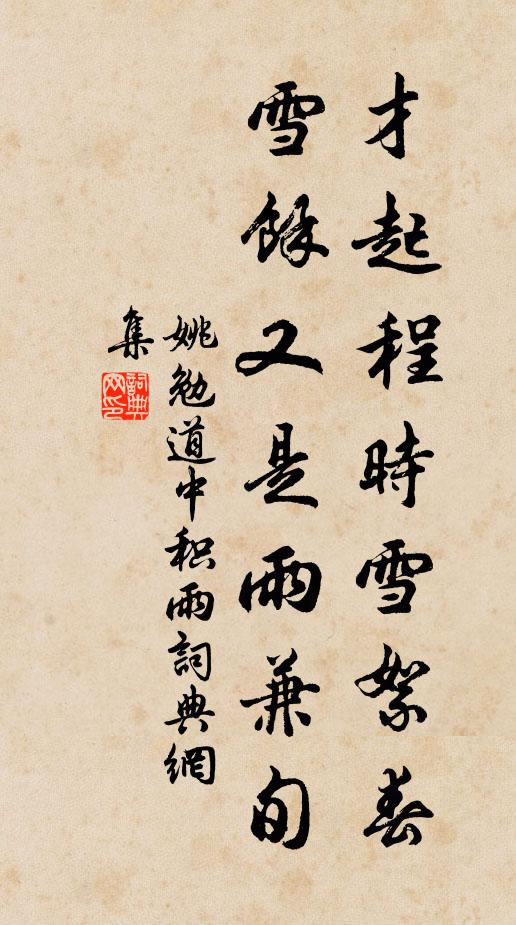 才起程時雪絮春
雪餘又是雨兼旬
姚勉道中积雨詞典網
集
詞典
网印